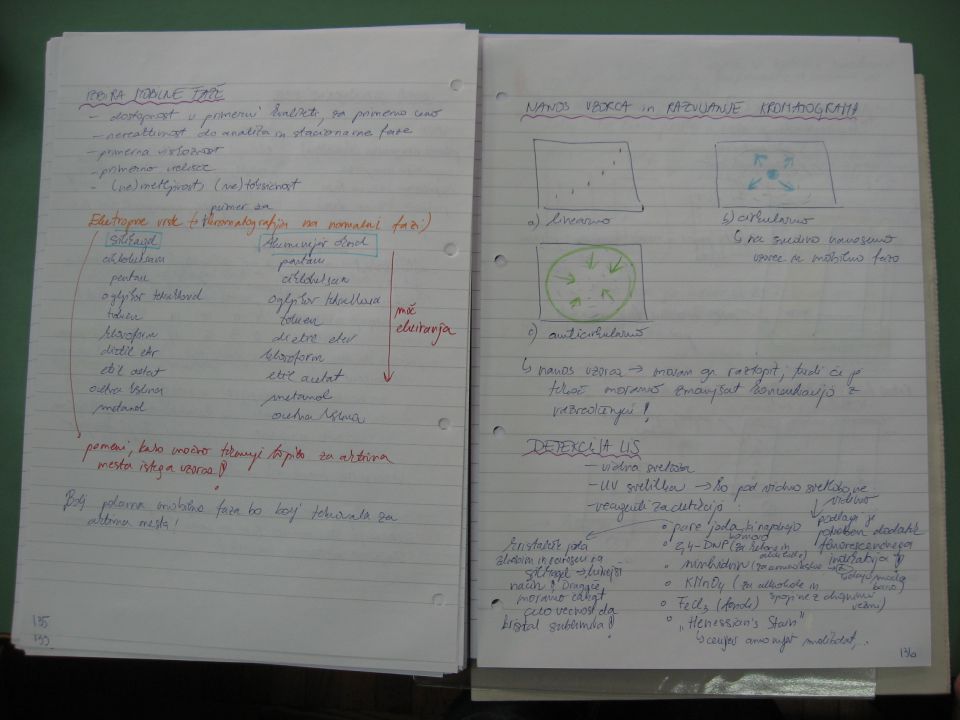 IZBIRA MOBILNE FAZE
- dostopnost v primerni kvaliteti, za primerno ceno
- nereaktivnost do analita in stacionarne faze
- primerna viskoznost
- primerno vrelišče
- (ne)mešljivost, (ne)toksičnost
primer za
Elutropne vrste (kromatografija na normalni fazi)
silikagel
aluminijev oksid
cikloheksan
pentan
pentan
cikloheksan
ogljikov tetraklorid
ogljikov tetraklorid
toluen
toluen
kloroform
dietil eter
dietil eter
kloroform
etil acetat
etil acetat
ocetna kislina
metanol
metanol
ocetna kislina
moč
eluiranja
pomeni, kako močno tekmuje topilo za aktivna
mesta istega vzorca!
Bolj polarna mobilna faza bo bolj tekmovala za
aktivna mesta!
135
133
NANOS VZORCA in RAZVIJANJE KROMATOGRAMA
a) linearno
b) cirkularno
↳ na sredino nanesemo
vzorec in mobilno fazo
c) anticirkularno
↳ nanos vzorca → moram ga raztopit, tudi če je
tekoč moramo zmanjšat koncentracijo z
razredčenjem!
DETEKCIJA LIS
- vidna svetloba
- UV svetilka → ko pod vidno svetlobo ne
vidimo
- reagenti za detekcijo
podlaga je
potreben dodatek
fluorescenčnega
indikatorja!
° pare joda, ki napolnijo
komoro
° 2,4-DNP (za ketone in
aldehide)
° ninhidrin (za aminokisline →
dajo modro
barvo)
° KMnO4 (za alkohole in
spojine z dvojnimi
vezmi)
° FeCl3 (fenole)
° "Henessian's Stain"
↳ cerijev amonijev molibdat,..
kristalčke joda
zdrobim in nanesem na
silikagel → hitrejši
način! Drugače
moramo čakat
celo večnost da
kristal sublimira!
136